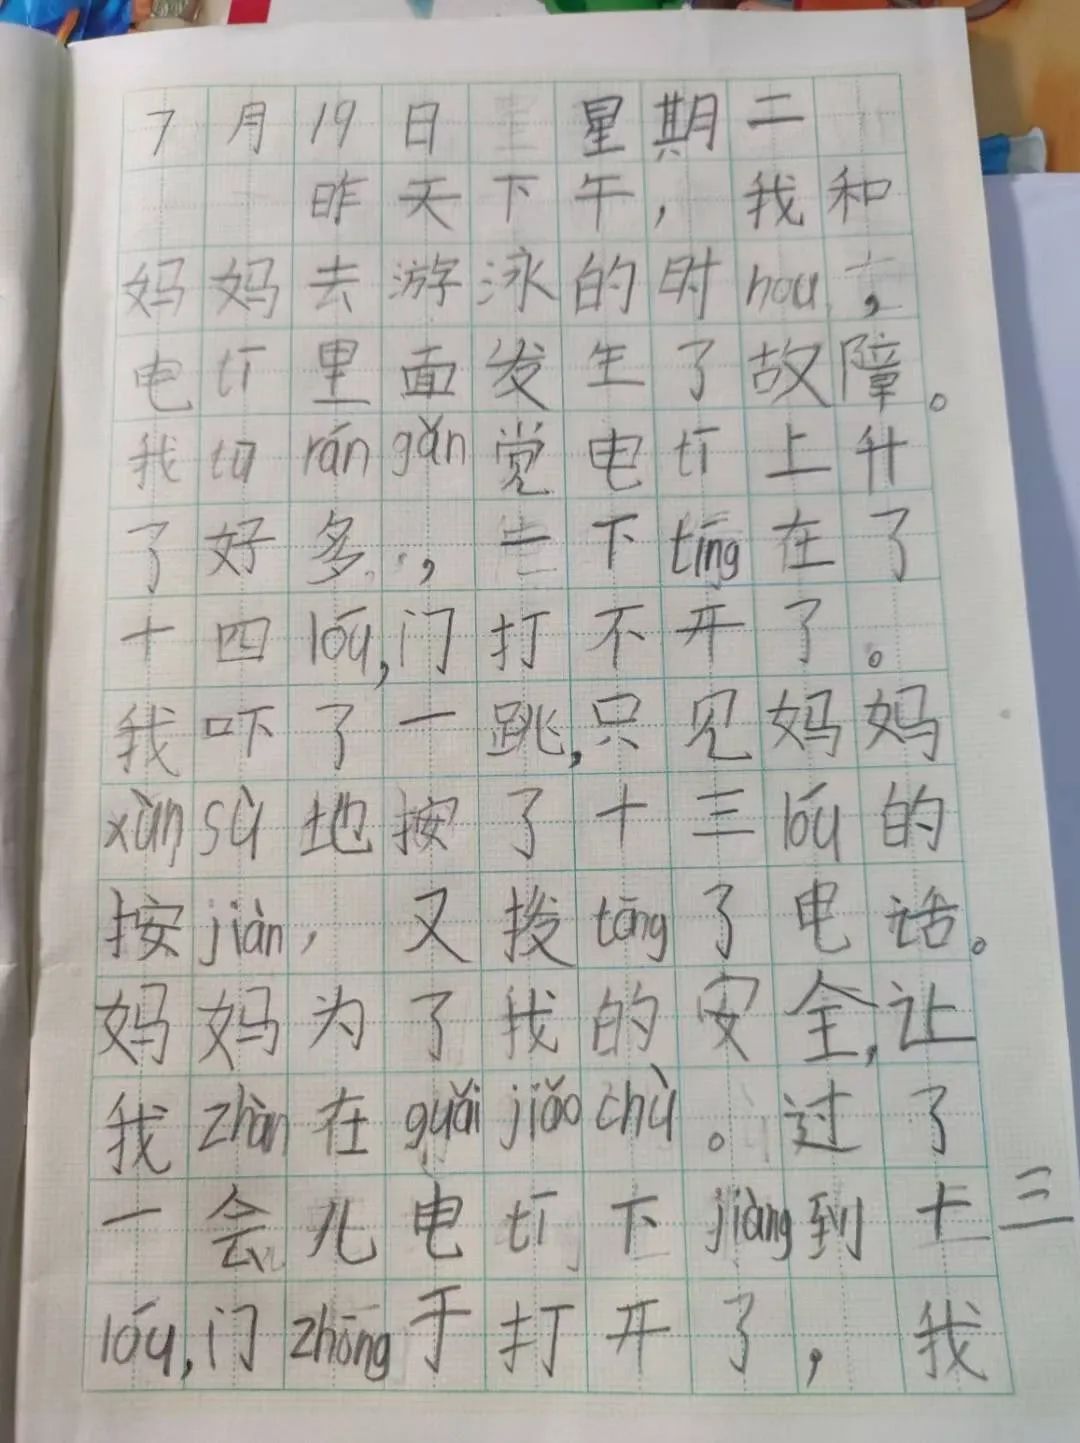 7月19日 星期二
昨天下午，我和
妈妈去游泳的时hou，
电tī里面发生了故障。
我tū rán gǎn觉电tī上升
了好多，一下tíng在了
十四lóu,门打不开了。
我吓了一跳,只见妈妈
xùn sù地按了十三lóu的
按jiàn，又拨tōng了电话。
妈妈为了我的安全,让
我zhàn在guǎi jiǎo chù。过了
一会儿电tī下jiàng到十三
lóu,门zhōng于打开了，我